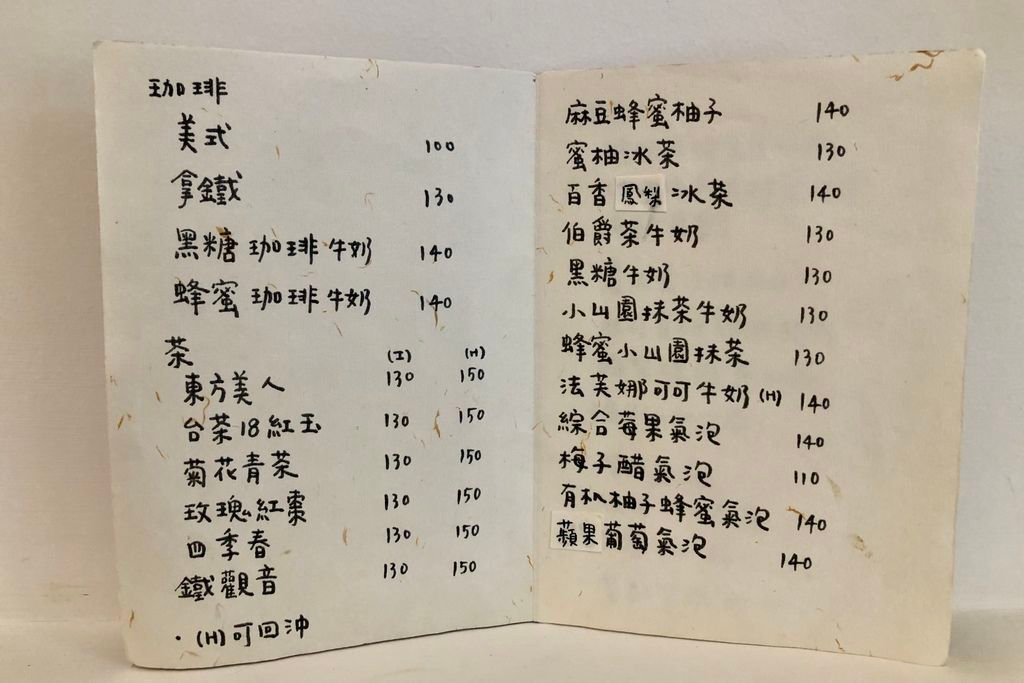 珈琲
美式 100
拿鐵 130
黑糖珈琲牛奶 140
蜂蜜珈琲牛奶 140
茶 (I) (H)
東方美人 130 150
台茶18紅玉 130 150
菊花青茶 130 150
玫瑰紅棗 130 150
四季春 130 150
鐵觀音 130 150
·(H)可回沖
麻豆蜂蜜柚子 140
蜜柚冰茶 130
百香鳳梨冰茶 140
伯爵茶牛奶 130
黑糖牛奶 130
小山園抹茶牛奶 130
蜂蜜小山園抹茶 130
法芙娜可可牛奶(H) 140
綜合莓果氣泡 140
梅子醋氣泡 110
有机柚子蜂蜜氣泡 140
蘋果葡萄氣泡 140